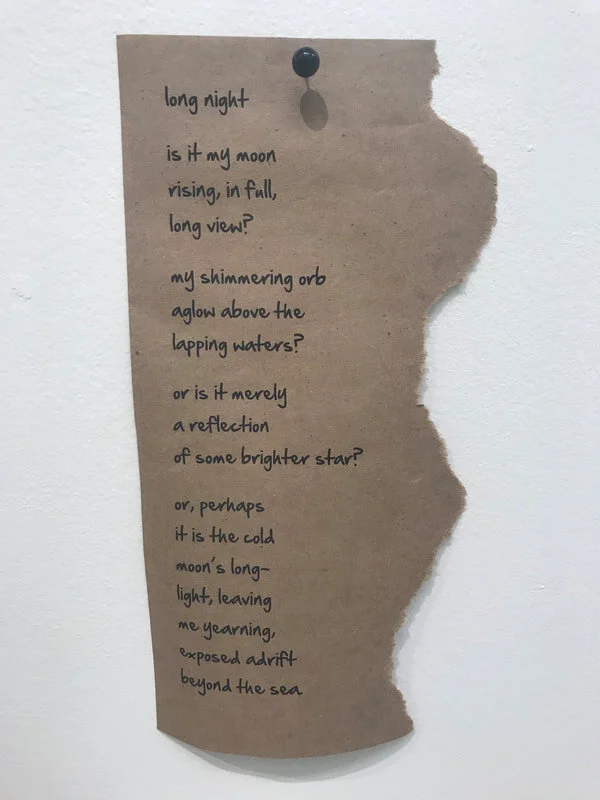 long night
is it my moon
rising, in full,
long view?
my shimmering orb
aglow above the
lapping waters?
or is it merely
a reflection
of some brighter star?
or, perhaps
it is the cold
moon's long-
light, leaving
me yearning,
exposed adrift
beyond the sea